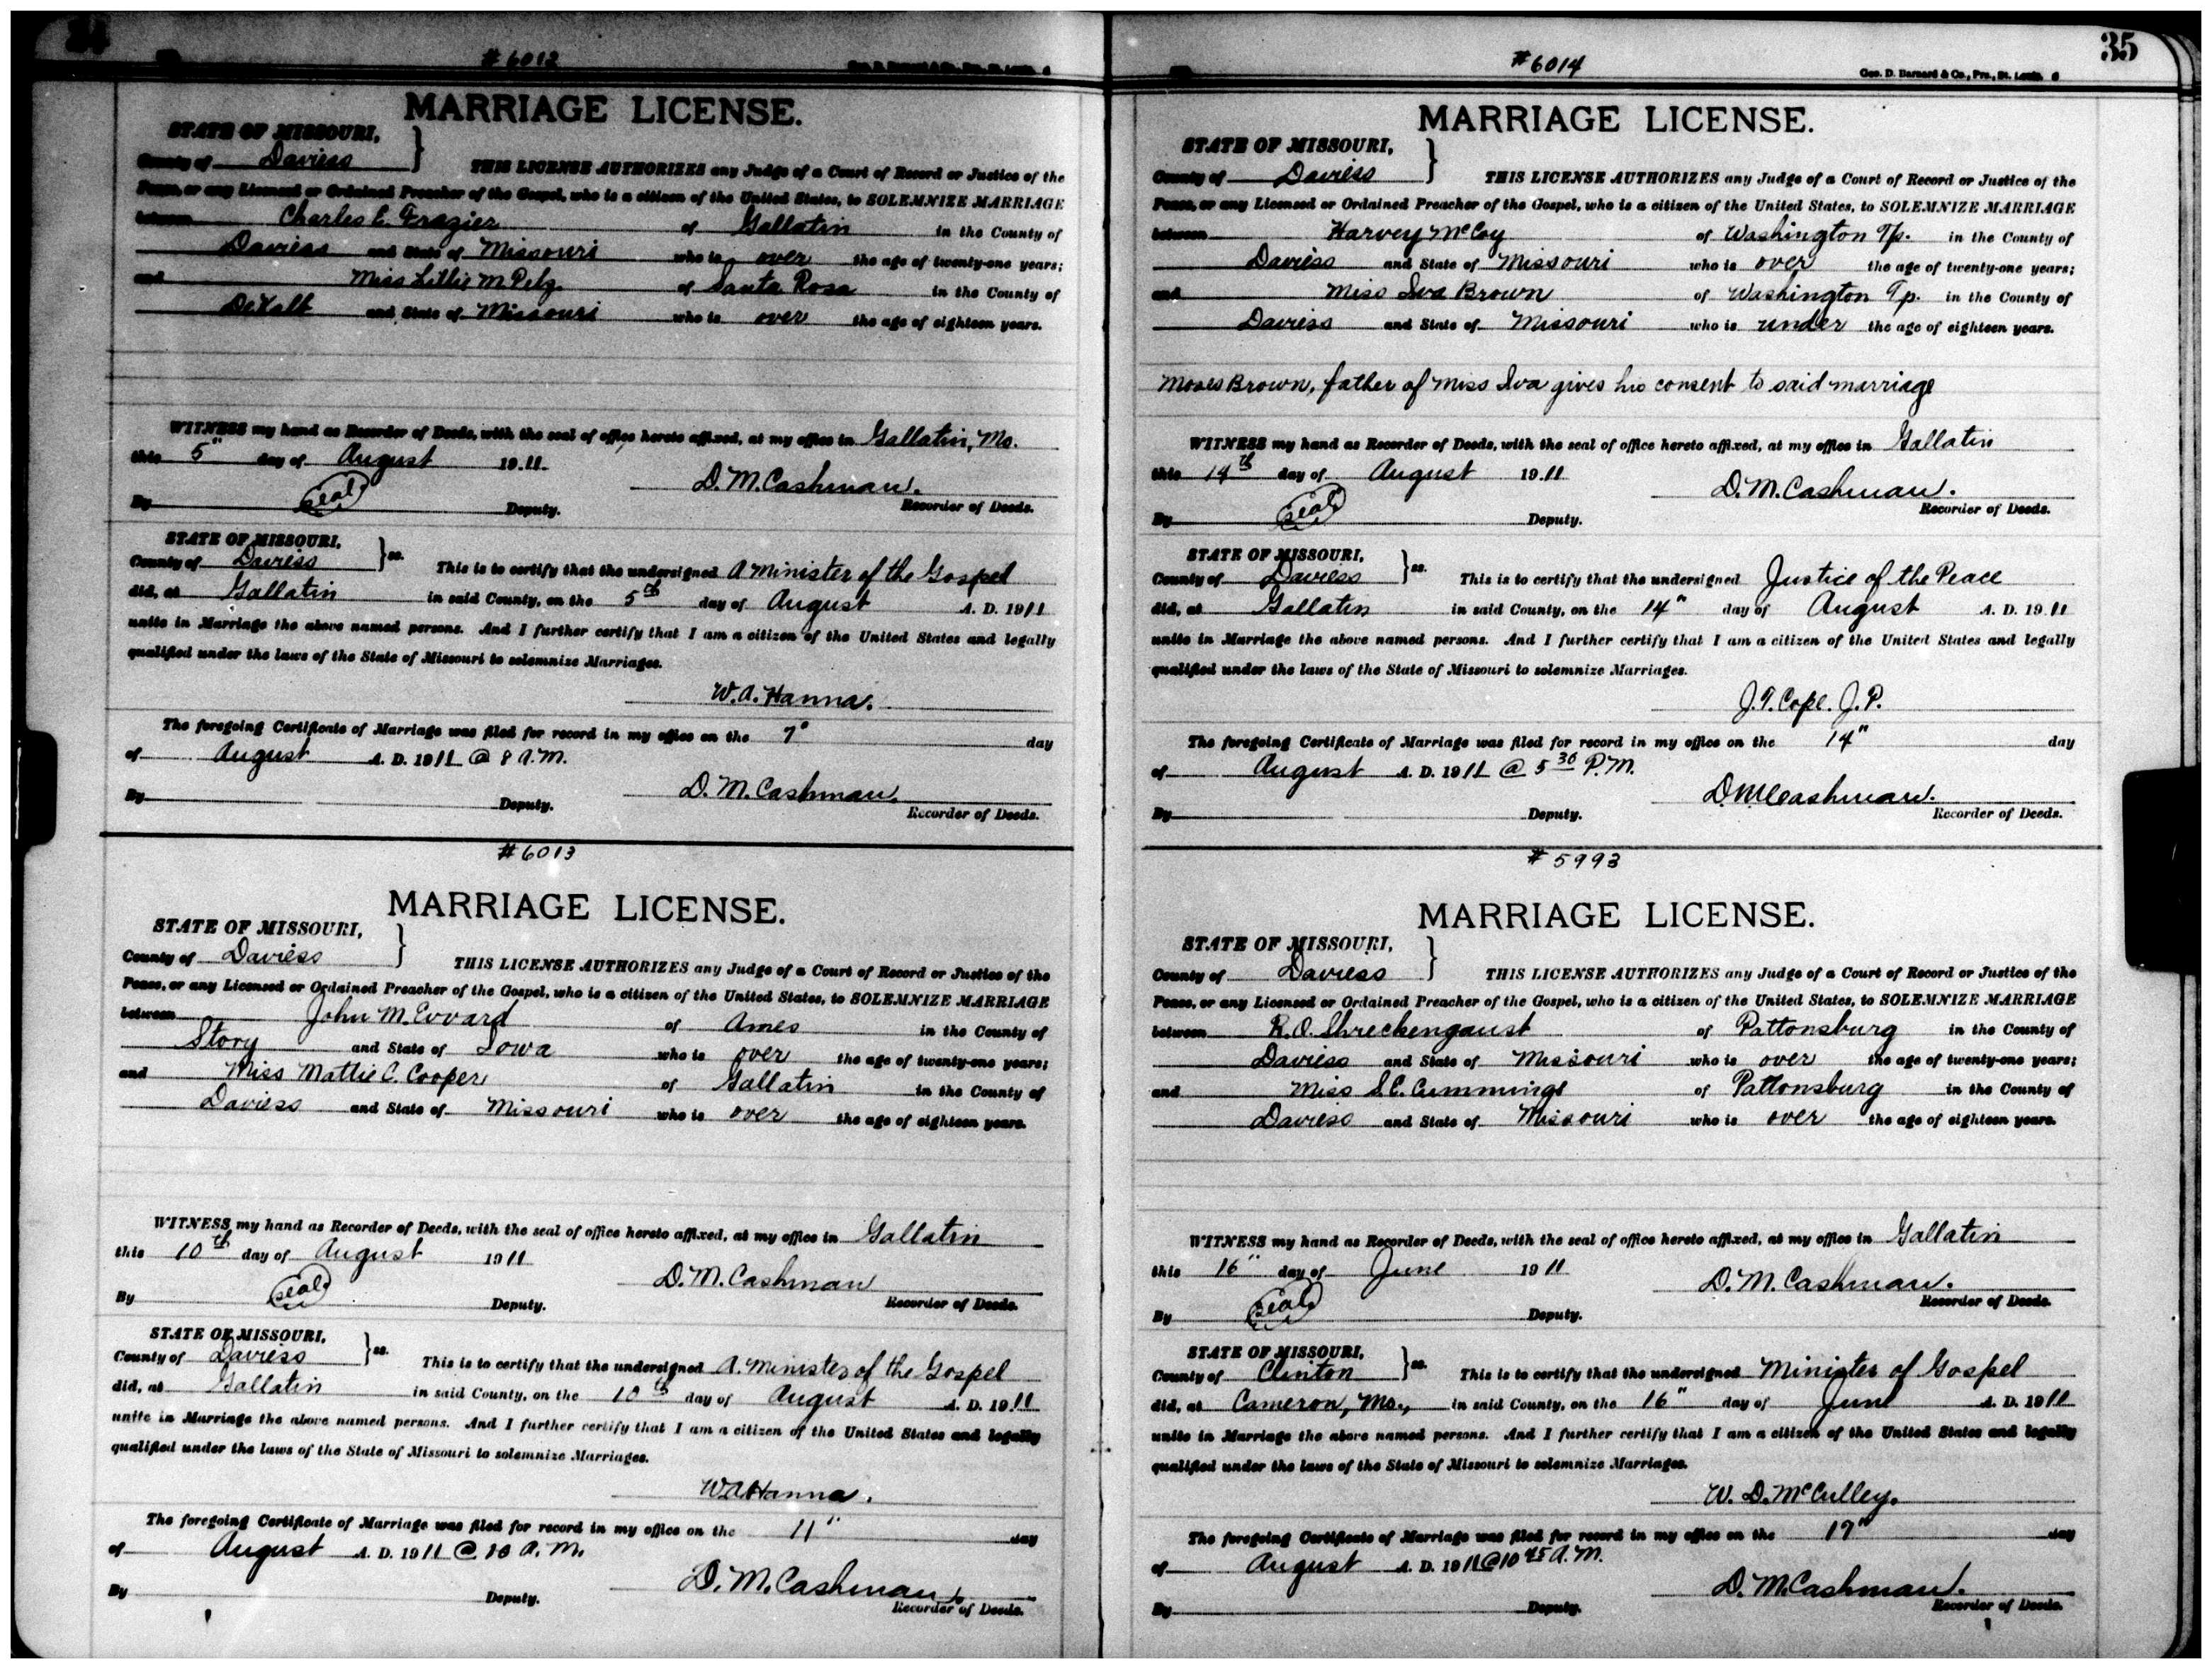 # 6012
MARRIAGE LICENSE.
STATE OF MISSOURI,
County of Daviess
THIS LICENSE AUTHORIZES any Judge of a Court of Record or Justice of the
Peace, or any Licensed or Ordained Preacher of the Gospel, who is a citizen of the United States, to SOLEMNIZE MARRIAGE
between Charles E. Frazier of Gallatin in the County of
Daviess and State of Missouri who is over the age of twenty-one years;
and Miss Lillie M Pelz of Santa Rosa in the County of
DeKalb and State of Missouri who is over the age of eighteen years.
WITNESS my hand as Recorder of Deeds, with the seal of office hereto affixed, at my office in Gallatin, Mo.
this 5" day of August 1911.
D. M. Cashman.
By (seal) Deputy. Recorder of Deeds.
STATE OF MISSOURI,
County of Daviess } ss. This is to certify that the undersigned A Minister of the Gospel
did, at Gallatin in said County, on the 5th day of August A. D. 1911
unite in Marriage the above named persons. And I further certify that I am a citizen of the United States and legally
qualified under the laws of the State of Missouri to solemnize Marriages.
W. A. Hanna.
The foregoing Certificate of Marriage was filed for record in my office on the 7" day
of August A. D. 1911 @ 8 A.M.
D. M. Cashman.
By Deputy. Recorder of Deeds.
# 6013
MARRIAGE LICENSE.
STATE OF MISSOURI,
County of Daviess
THIS LICENSE AUTHORIZES any Judge of a Court of Record or Justice of the
Peace, or any Licensed or Ordained Preacher of the Gospel, who is a citizen of the United States, to SOLEMNIZE MARRIAGE
between John M. Evvard of Ames in the County of
Story and State of Iowa who is over the age of twenty-one years;
and Miss Mattie C. Cooper of Gallatin in the County of
Daviess and State of Missouri who is over the age of eighteen years.
WITNESS my hand as Recorder of Deeds, with the seal of office hereto affixed, at my office in Gallatin
this 10th day of August 1911
D. M. Cashman
By (seal) Deputy. Recorder of Deeds.
STATE OF MISSOURI,
County of Daviess } ss. This is to certify that the undersigned A. Minister of the Gospel
did, at Gallatin in said County, on the 10th day of August A. D. 1911
unite in Marriage the above named persons. And I further certify that I am a citizen of the United States and legally
qualified under the laws of the State of Missouri to solemnize Marriages.
W A Hanna.
The foregoing Certificate of Marriage was filed for record in my office on the 11" day
of August A. D. 1911 @ 10 A. M.
D. M. Cashman.
By Deputy. Recorder of Deeds.
35
# 6014
Geo. D. Barnard & Co., Prs., St. Louis.
MARRIAGE LICENSE.
STATE OF MISSOURI,
County of Daviess
THIS LICENSE AUTHORIZES any Judge of a Court of Record or Justice of the
Peace, or any Licensed or Ordained Preacher of the Gospel, who is a citizen of the United States, to SOLEMNIZE MARRIAGE
between Harvey McCoy of Washington Tp. in the County of
Daviess and State of Missouri who is over the age of twenty-one years;
and Miss Iva Brown of Washington Tp. in the County of
Daviess and State of Missouri who is under the age of eighteen years.
Moses Brown, father of Miss Iva gives his consent to said marriage
WITNESS my hand as Recorder of Deeds, with the seal of office hereto affixed, at my office in Gallatin
this 14th day of August 1911
D. M. Cashman.
By (seal) Deputy. Recorder of Deeds.
STATE OF MISSOURI,
County of Daviess } ss. This is to certify that the undersigned Justice of the Peace
did, at Gallatin in said County, on the 14" day of August A. D. 1911
unite in Marriage the above named persons. And I further certify that I am a citizen of the United States and legally
qualified under the laws of the State of Missouri to solemnize Marriages.
J. T. Cope. J. P.
The foregoing Certificate of Marriage was filed for record in my office on the 14" day
of August A. D. 1911 @ 5 30 P.M.
D. M Cashman.
By Deputy. Recorder of Deeds.
# 5993
MARRIAGE LICENSE.
STATE OF MISSOURI,
County of Daviess
THIS LICENSE AUTHORIZES any Judge of a Court of Record or Justice of the
Peace, or any Licensed or Ordained Preacher of the Gospel, who is a citizen of the United States, to SOLEMNIZE MARRIAGE
between R. O. Shreckengaust of Pattonsburg in the County of
Daviess and State of Missouri who is over the age of twenty-one years;
and Miss S. E. Cummings of Pattonsburg in the County of
Daviess and State of Missouri who is over the age of eighteen years.
WITNESS my hand as Recorder of Deeds, with the seal of office hereto affixed, at my office in Gallatin
this 16" day of June 1911
D. M. Cashman.
By (seal) Deputy. Recorder of Deeds.
STATE OF MISSOURI,
County of Clinton } ss. This is to certify that the undersigned Minister of Gospel
did, at Cameron, Mo., in said County, on the 16" day of June A. D. 1911
unite in Marriage the above named persons. And I further certify that I am a citizen of the United States and legally
qualified under the laws of the State of Missouri to solemnize Marriages.
W. D. McCulley.
The foregoing Certificate of Marriage was filed for record in my office on the 17" day
of August A. D. 1911 @ 10 45 A. M.
D. M. Cashman.
By Deputy. Recorder of Deeds.